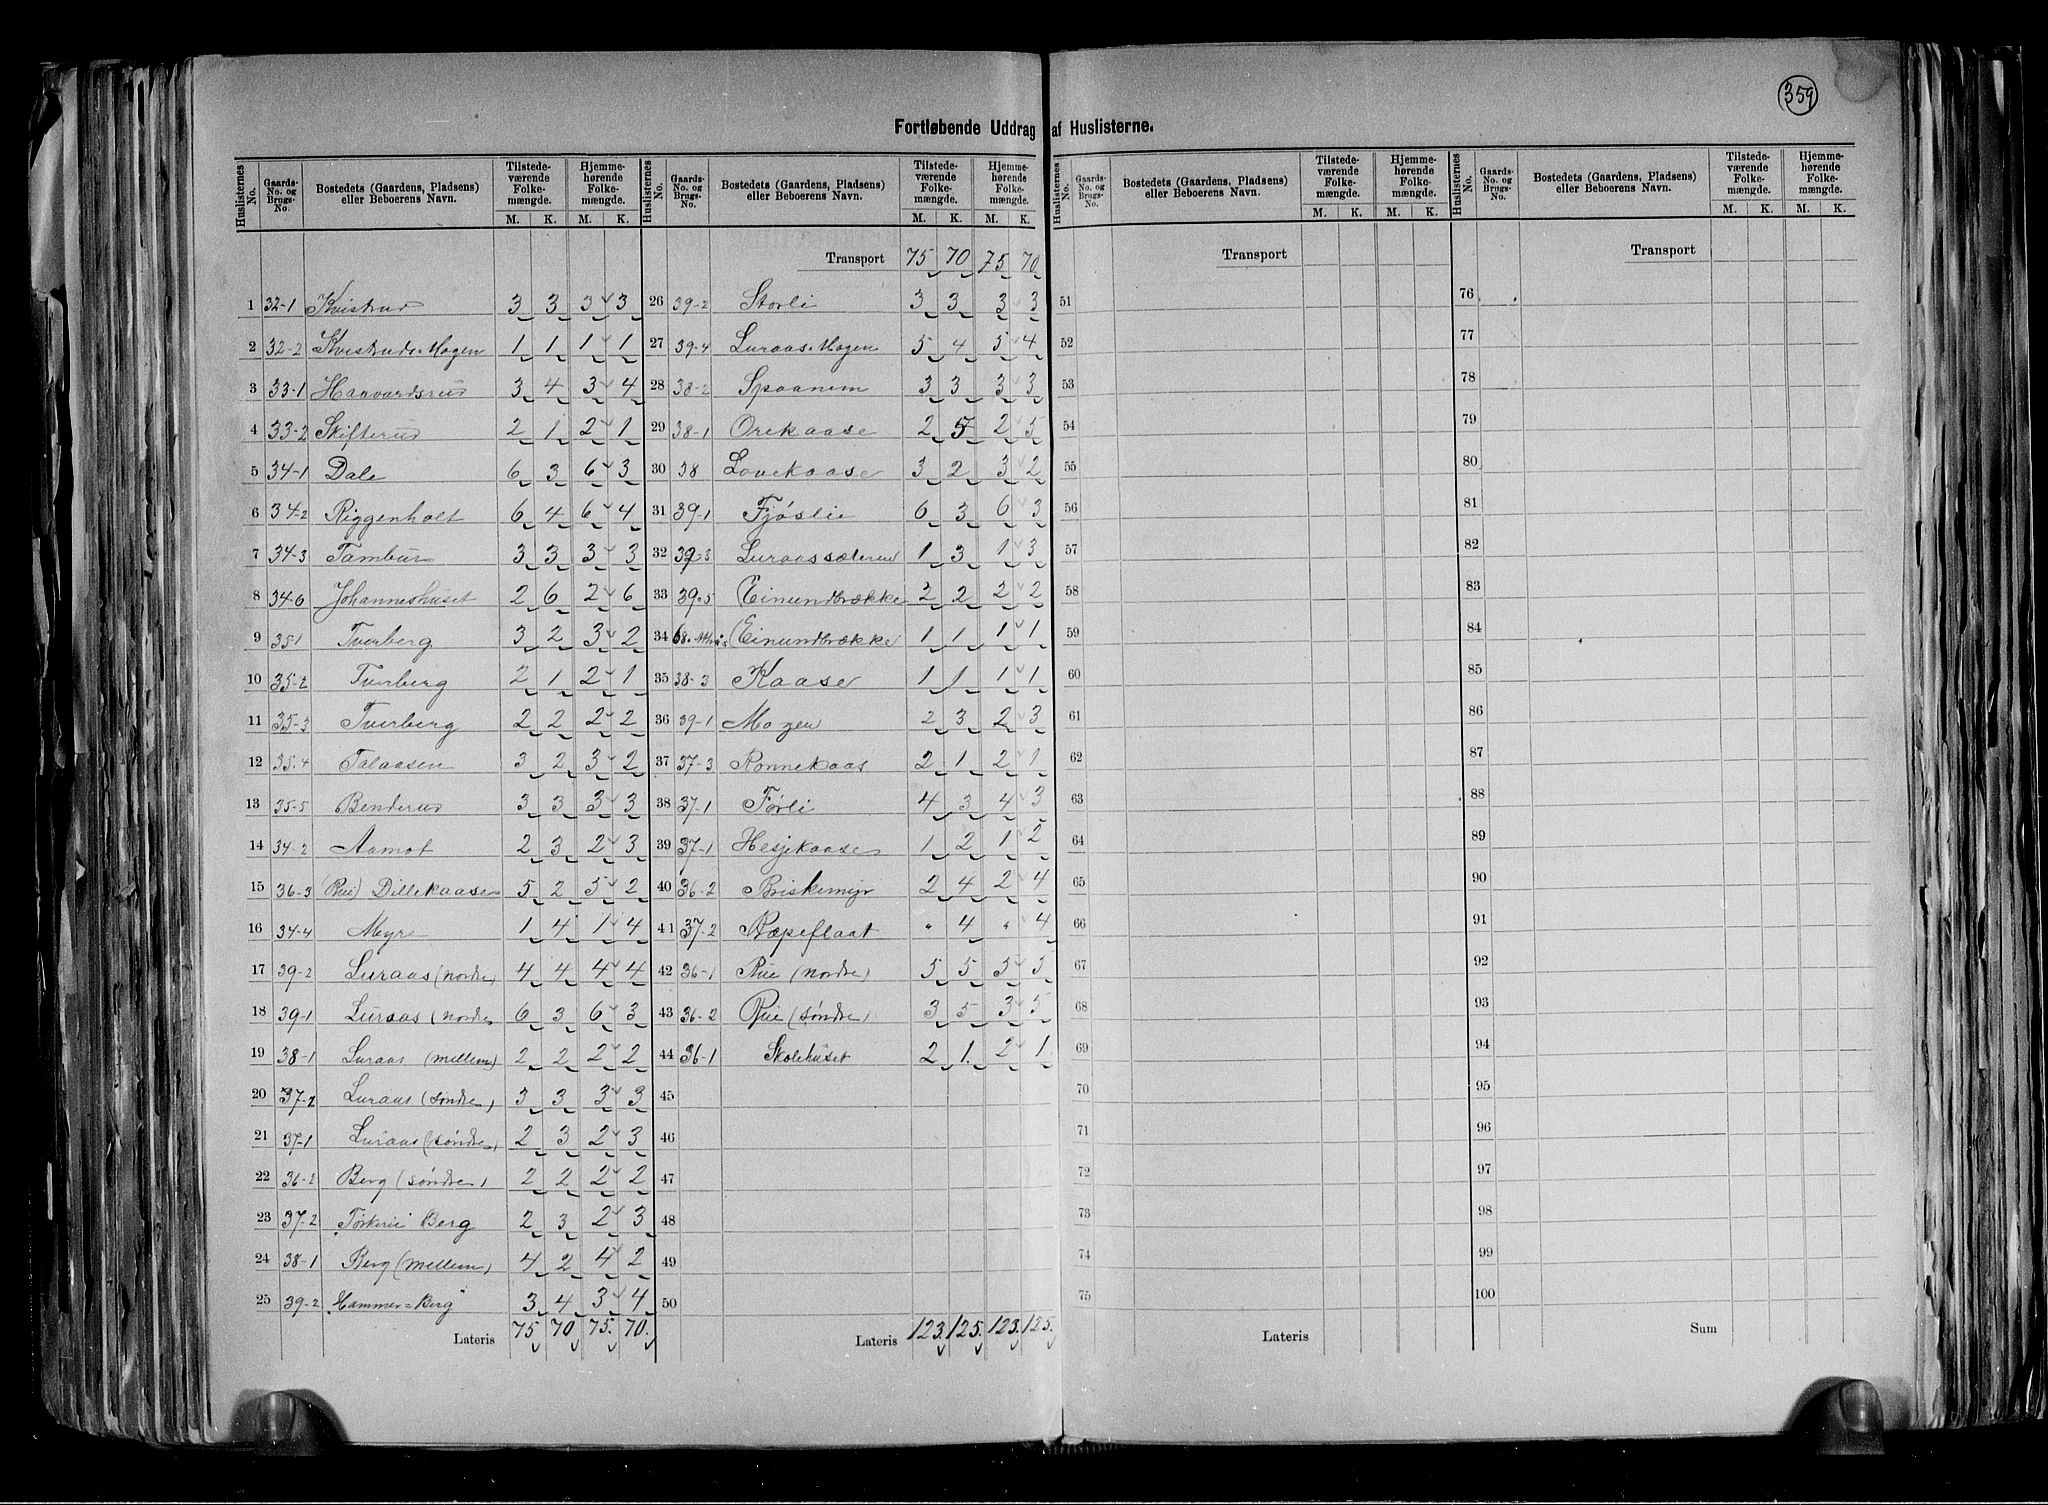 359
Fortløbende Uddrag af Huslisterne.
Huslisternes No. Gaards-No. og Brugs-No. Bostedets (Gaardens, Pladsens) eller Beboerens Navn. Tilstedeværende Folkemængde. M. K. Hjemmehørende Folkemængde. M. K.
1 32-1 Kvistrud 3 3 3 3
2 32-2 Kvistruds-Hagen 1 1 1 1
3 33-1 Haavardsrud 3 4 3 4
4 33-2 Skifterud 2 1 2 1
5 34-1 Dale 6 3 6 3
6 34-2 Riggenholt 6 4 6 4
7 34-3 Tambur 3 3 3 3
8 34-6 Johanneshuset 2 6 2 6
9 351 Tverberg 3 2 3 2
10 35-2 Tverberg 2 1 2 1
11 35-3 Tverberg 2 2 2 2
12 35-4 Talaasen 3 2 3 2
13 35-5 Benderud 3 3 3 3
14 34-2 Aamot 2 3 2 3
15 36-3 (Rue) Dillekaase 5 2 5 2
16 34-4 Myre 1 4 1 4
17 39-2 Luraas (nordre) 4 4 4 4
18 39-1 Luraas (nordre 6 3 6 3
19 38-1 Luraas (mellem) 2 2 2 2
20 37-2 Luraas (søndre) 3 3 3 3
21 37-1 Luraas (søndre) 2 3 2 3
22 36-2 Berg (søndre) 2 2 2 2
23 37-2 "Torkeri" Berg 2 3 2 3
24 38-1 Berg (mellem) 4 2 4 2
25 39-2 "Hammer-Berg" 3 4 3 4
Lateris 75 70 75. 70.
Huslisternes No. Gaards-No. og Brugs-No. Bostedets (Gaardens, Pladsens) eller Beboerens Navn. Tilstedeværende Folkemængde. M. K. Hjemmehørende Folkemængde. M. K.
Transport 75 70 75 70
26 39-2 Storli 3 3 3 3
27 39-4 Luraas-Hagen 5 4 5 4
28 38-2 Spaanem 3 3 3 3
29 38-1 Orekaase 2 5 2 5
30 38 Lovekaase 3 2 3 2
31 39-1 Fjøslie 6 3 6 3
32 39-3 Luraassæterud 1 3 1 3
33 39-5 (Einundbrække 2 2 2 2
34 68. (Einundbrække 1 1 1 1
35 38-3 Kaase 1 1 1 1
36 39-1 Mogen 2 3 2 3
37 37-3 Ronnekaas 2 1 2 1
38 37-1 Førli 4 3 4 3
39 37-1 Hesjekaase 1 2 1 2
40 36-2 Briskemyr 2 4 2 4
41 37-2 Ræpeflaat " 4 " 4
42 36-1 Rue (nordre) 5 5 5 5
43 36-2 Rue (søndre) 3 5 3 5
44 36-1 Skolehuset 2 1. 2 1.
45
46
47
48
49
50
Lateris 123. 125. 123. 125.
Huslisternes No. Gaards-No. og Brugs-No. Bostedets (Gaardens, Pladsens) eller Beboerens Navn. Tilstedeværende Folkemængde. M. K. Hjemmehørende Folkemængde. M. K.
Transport
51
52
53
54
55
56
57
58
59
60
61
62
63
64
65
66
67
68
69
70
71
72
73
74
75
Lateris
Huslisternes No. Gaards-No. og Brugs-No. Bostedets (Gaardens, Pladsens) eller Beboerens Navn. Tilstedeværende Folkemængde. M. K. Hjemmehørende Folkemængde. M. K.
Transport
76
77
78
79
80
81
82
83
84
85
86
87
88
89
90
91
92
93
94
95
96
97
98
99
100
Sum